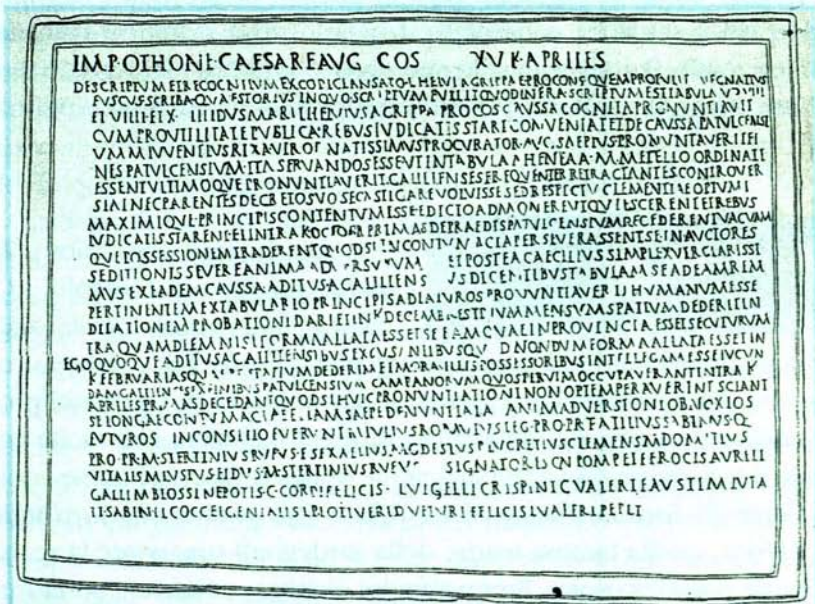 IMP·OTHONE·CAESARE AVG COS XV K·APRILES
DESCRIPTVM ET RECOGNITVM EX CODICE ANSATO L HELVI AGRIPPAE PROCONS QVEM PROTVLIT CN EGNATIVS
FVSCVS SCRIBA QVAESTORIVS IN QVO SCRIPTVM FVIT IT QVOD INFRA SCRIPTVM EST TABVLA
ET VIIII ET X III IDVS MART L HELVIVS AGRIPPA PROCOS CAVSSA COGNITA PRONVNTIAVIT
CVM PRO VTILITATE PVBLICA REBVS IVDICATIS STARE CONVENIAT ET DE CAVSSA PATVLCENSI
VM M IVVENTIVS RIXA VIR ORNATISSIMVS PROCVRATOR AVG SAEPIVS PRONVNTAVERIT FI
NES PATVLCENSIVM ITA SERVANDOS ESSE VT IN TABVLA AHENEA A M METELLO ORDINATI
ESSENT VLTIMOQVE PRONVNTIAVERIT GALILLENSES FREQVENTER RETRACTANTES CONTROVER
SIA NEC PARENTES DECRETO SVO SE CASTIGARE VOLVISSE SED RESPECTV CLEMENTIAE OPTVMI
MAXIMIQVE PRINCIPIS CONTENTVM ESSE EDICTO ADMONERE VT QVIESCERENT ET REBVS
IVDICATIS STARENT ET INTRA K OCTOBR PRIMAS DE PRAEDIS PATVLCENSIVM RECEDERENT VACVAM
QVE POSSESSIONEM TRADERENT QVOD SI IN CONTVMACIA PERSEVERASSENT SE IN AVCTORES
SEDITIONIS SEVERE ANIMA ADVERSVRVM ET POSTEA CAECILIVS SIMPLEX VIR CLARISSI
MVS EX EADEM CAVSSA ADITVS A GALILLENS VS DICENTIBVS TABVLAM SE AD EAM REM
PERTINENTEM EX TABVLARIO PRINCIPIS ADLATVROS PRONVNTIAVERIT HVMANVM ESSE
DILATIONEM PROBATIONI DARI ET IN K DECEMBRES TRIVM MENSVM SPATIVM DEDERIT IN
TRA QVAM DIEM NISI FORMA ALLATA ESSET SE EAM QVAE IN PROVINCIA ESSET SECVTVRVM
EGO QVOQVE ADITVS A GALILLENSIBVS EXCVSANTIBVS QV D NONDVM FORMA ALLATA ESSET IN
K FEBRVARIAS QVAE P F SPATIVM DEDERIM ET MORAM ILLIS POSSESSORIBVS INTELLEGAM ESSE IVCVN
DAM GALILLENSES EX FINIBVS PATVLCENSIVM CAMPANORVM QVOS PER VIM OCCVPAVERANT INTRA K
APRILES PRIMAS DECEDANT QVOD SI HVIC PRONVNTIATIONI NON OPTEMPERAVERINT SCIANT
SE LONGAE CONTVMACIAE ET IAM SAEPE DENVNTIATA ANIMADVERSIONI OBNOXIOS
FVTVROS IN CONSILIO FVERVNT M IVLIVS ROMVLVS LEG PRO PR T ATILIVS SABINVS Q
PRO PR M STERTINIVS RVFVS F SEX AELIVS MODESTVS P LVCRETIVS CLEMENS M DOMITIVS
VITALIS M LVSIVS FIDVS M STERTINIVS RVFVS SIGNATORES CN POMPEI FEROCIS AVRELI
GALLI M BLOSSI NEPOTIS C CORDI FELICIS L VIGELLI CRISPINI C VALERI FAVSTI M LVTA
TI SABINI L COCCEI GENIALIS L PLOTI VERI D VETVRI FELICIS L VALERI PEPLI